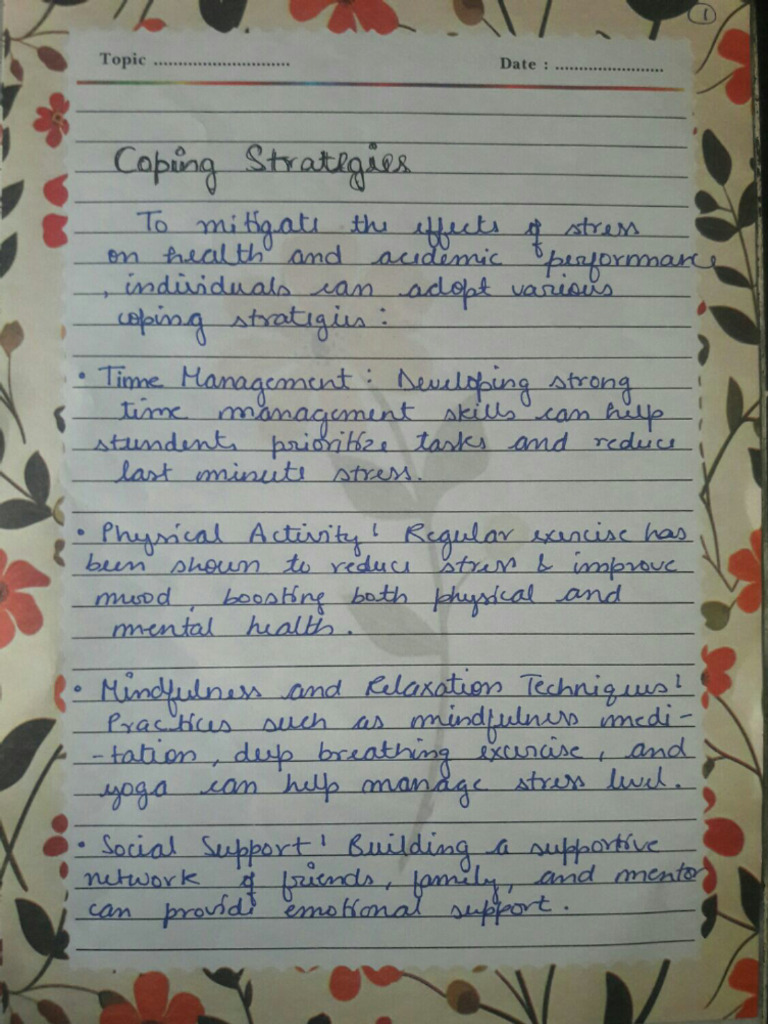 1
Topic ............................ Date : ......................
Coping Strategies
To mitigate the effects of stress
on health and acedemic performance
, individuals can adopt various
coping strategies :
• Time Management : Developing strong
time management skills can help
stundents prioritize tasks and reduce
last minute stress.
• Physical Activity : Regular exercise has
been shown to reduce stress & improve
mood, boosting both physical and
mental health.
• Mindfulness and Relaxation Techniques :
Practices such as mindfulness medi-
-tation, deep breathing exercise, and
yoga can help manage stress level.
• Social Support : Building a supportive
network of friends, family, and mentor
can provide emotional support.